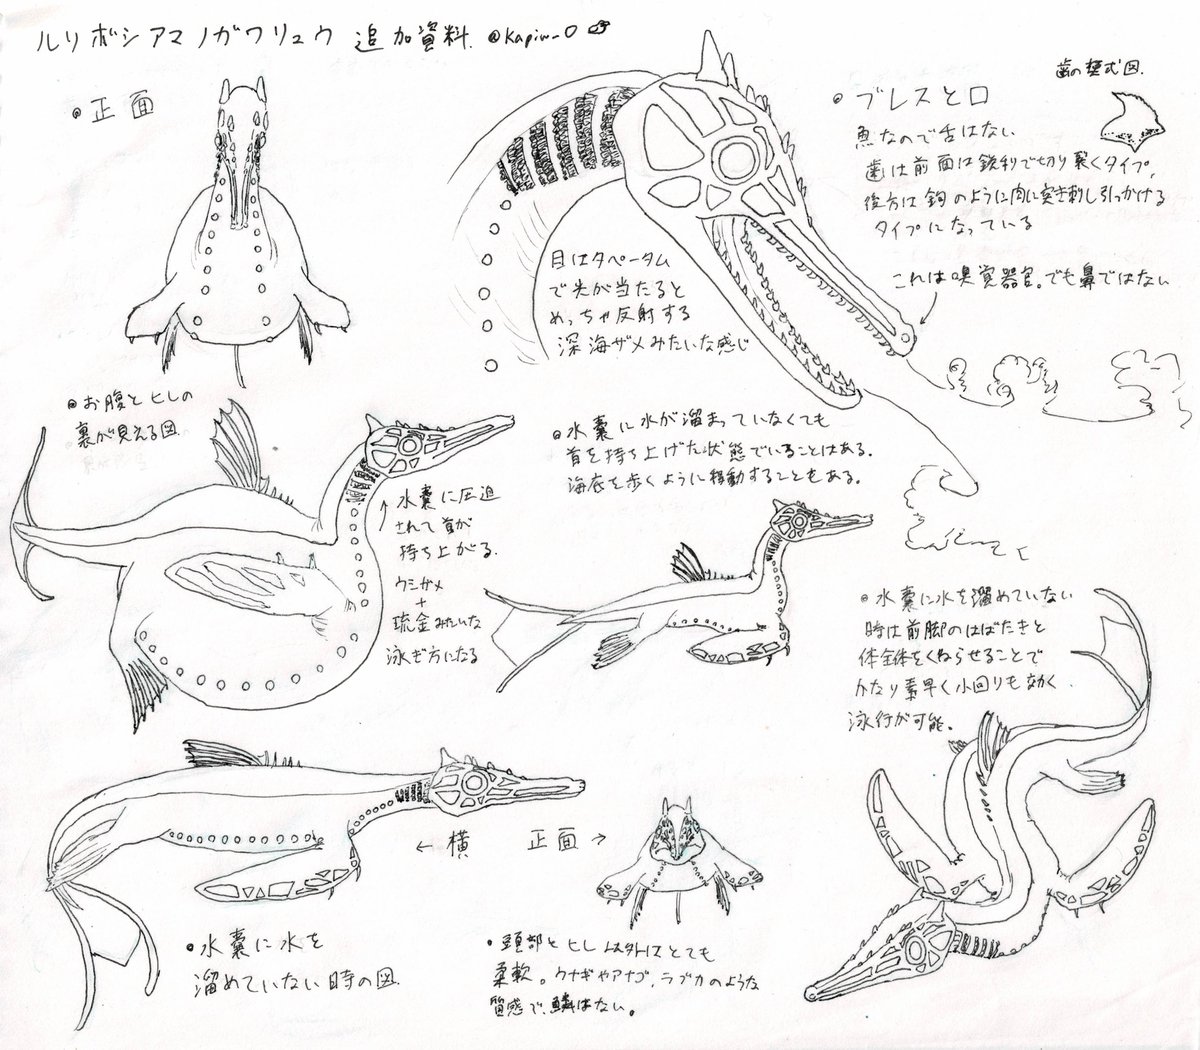 ルリボシアマノガワリュウ 追加資料 @kapiw_0
●正面
歯の模式図.
●ブレスと口
魚なので舌はない
歯は前面は鋭利で切り裂くタイプ,
後方は鉤のように肉に突き刺し引っかける
タイプになっている
これは嗅覚器官。でも鼻ではない
目はタペータム
で光が当たると
めっちゃ反射する
深海ザメみたいな感じ
●お腹とヒレの
裏が見える図.
↑水嚢に圧迫
されて首が
持ち上がる.
ウシザメ
+
琉金みたいな
泳ぎ方になる
●水嚢に水が溜まっていなくても
首を持ち上げた状態でいることはある.
海底を歩くように移動することもある.
●水嚢に水を溜めていない
時は前脚のはばたきと
体全体をくねらせることで
かなり素早く小回りも効く
泳行が可能。
←横
正面→
●水嚢に水を
溜めていない時の図.
●頭部とヒレ以外はとても
柔軟。ウナギやアナゴ,ラブカのような
質感で、鱗はない。